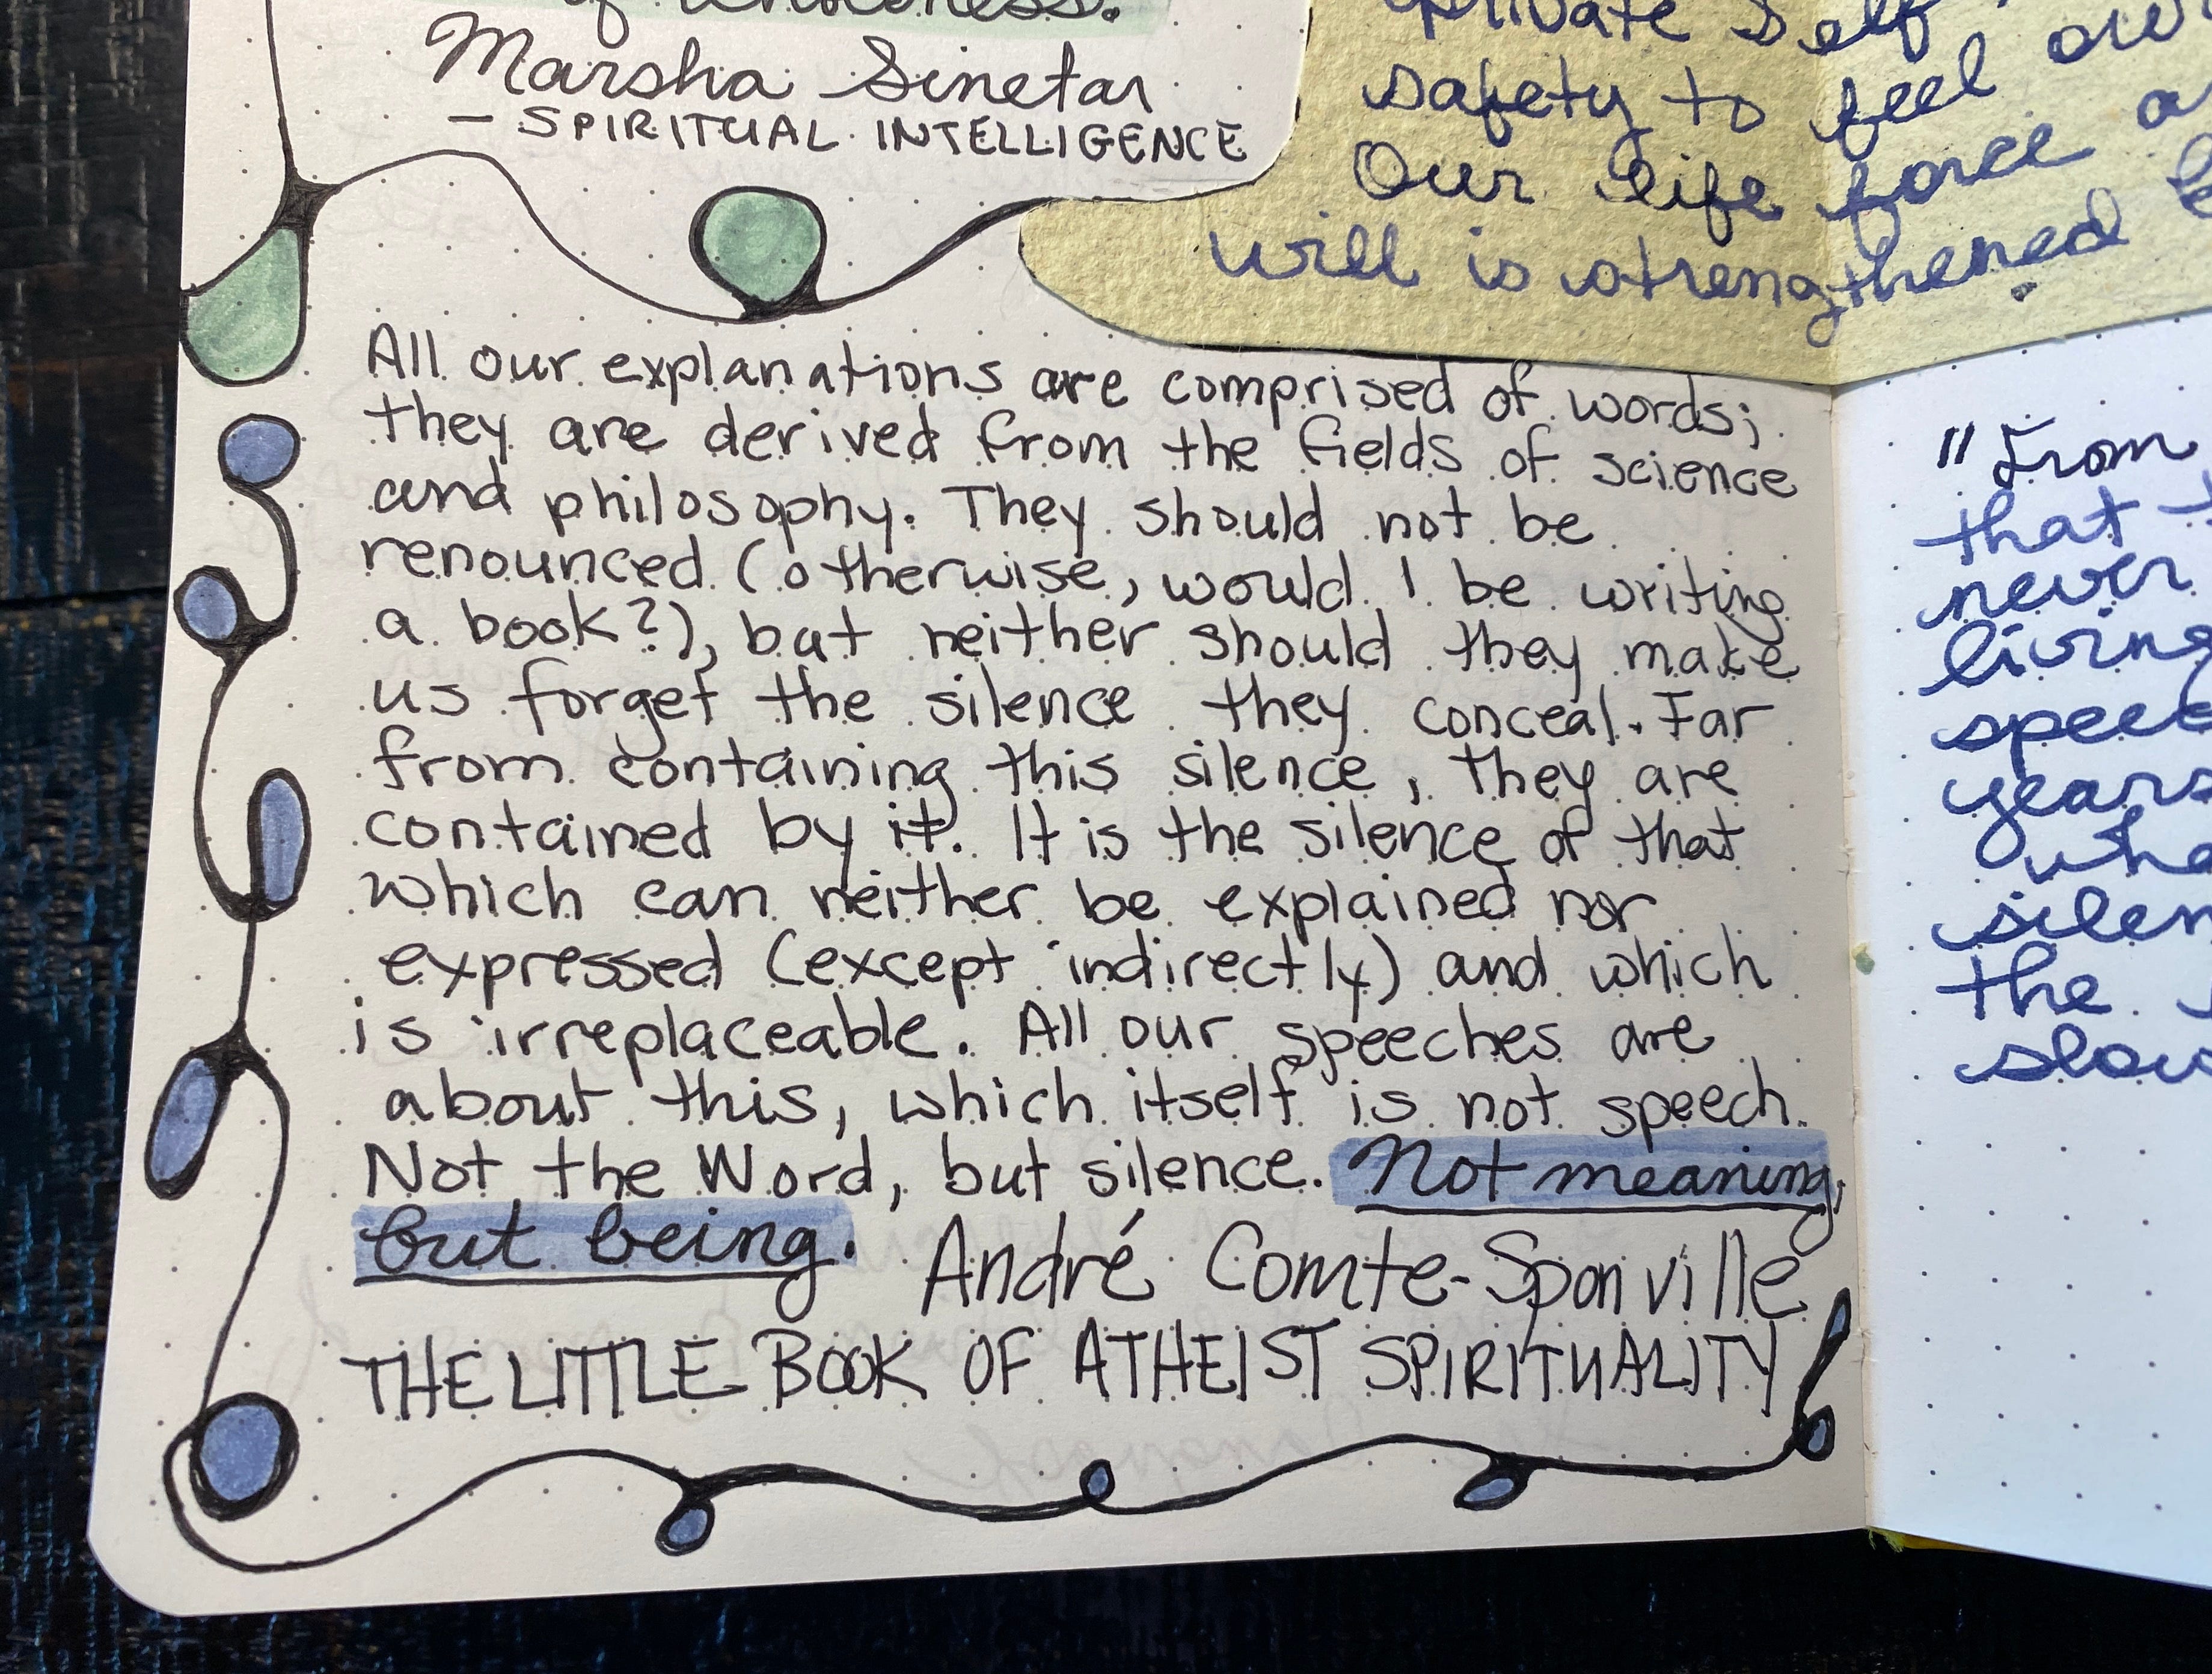 of wholeness.
Marsha Sinetar
– SPIRITUAL INTELLIGENCE
All our explanations are comprised of words;
they are derived from the fields of science
and philosophy. They should not be
renounced (otherwise, would I be writing
a book?), but neither should they make
us forget the silence they conceal. Far
from containing this silence, they are
contained by it. It is the silence of that
which can neither be explained nor
expressed (except indirectly) and which
is irreplaceable. All our speeches are
about this, which itself is not speech.
Not the Word, but silence. Not meaning,
but being. André Comte-Sponville
THE LITTLE BOOK OF ATHEIST SPIRITUALITY
private self
safety to feel our
Our life force
will is strengthened
"From
that
never
living
years
the